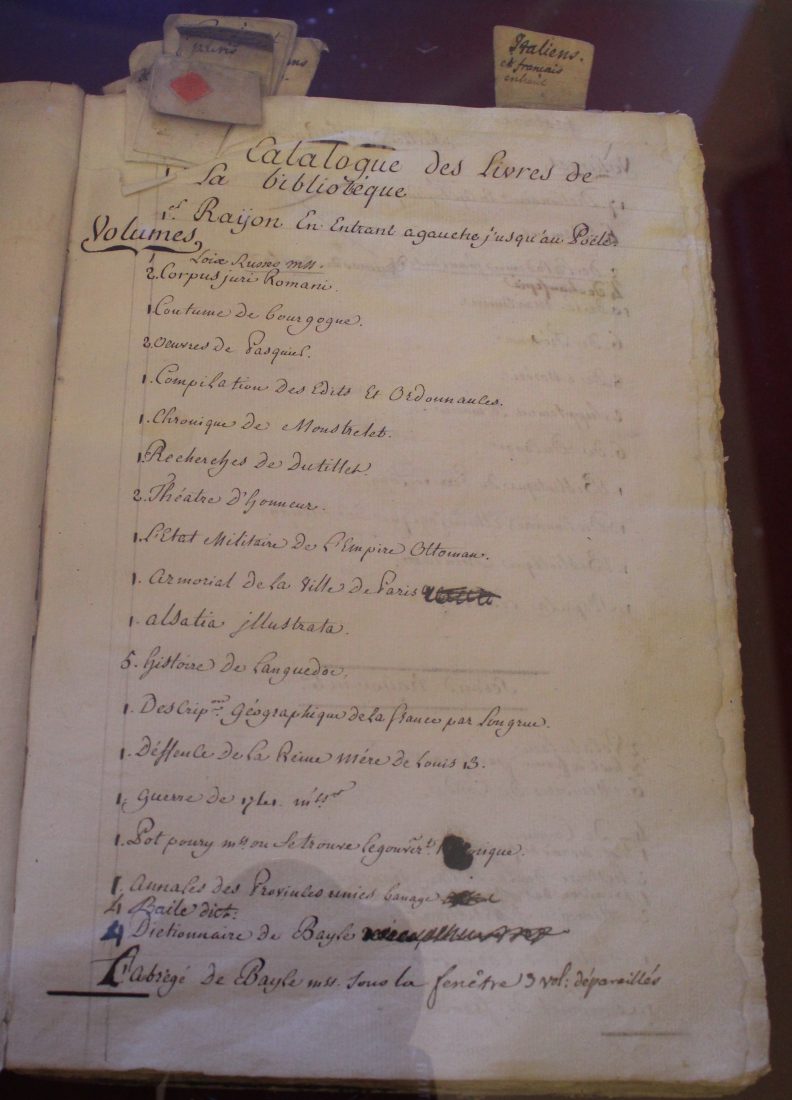 Italiens.
et français
Catalogue des Livres de
La bibliotéque
1er. Raÿon En Entrant a gauche jusqu'au Poële.
Volumes,
1 Loix Russes mss.
2. Corpus juri Romani.
1. Coutume de bourgogne.
2. Oeuvres de Pasquier.
1. Compilation Des Edits Et Ordonnances.
1. Chronique de Monstrelet.
1. Recherches de Dutillet.
2. Théatre D'honneur.
1. L'Etat Militaire de L'Empire Ottoman.
1. Armorial de la Ville de Paris
1. alsatia illustrata.
5. histoire de Languedoc.
1. Descripon. Géographique de la france par Longrue.
1. Déffence de la Reine mére de Louis 13.
1. Guerre de 1741. mss
1. Pot poury mss ou se trouve le gouvert.
1. Annales des Provinces unies banage
4 Baile dict:
4 Dictionnaire de Bayle
L'abrégé de Bayle mss. sous la fenêtre 3 vol: dépareillés